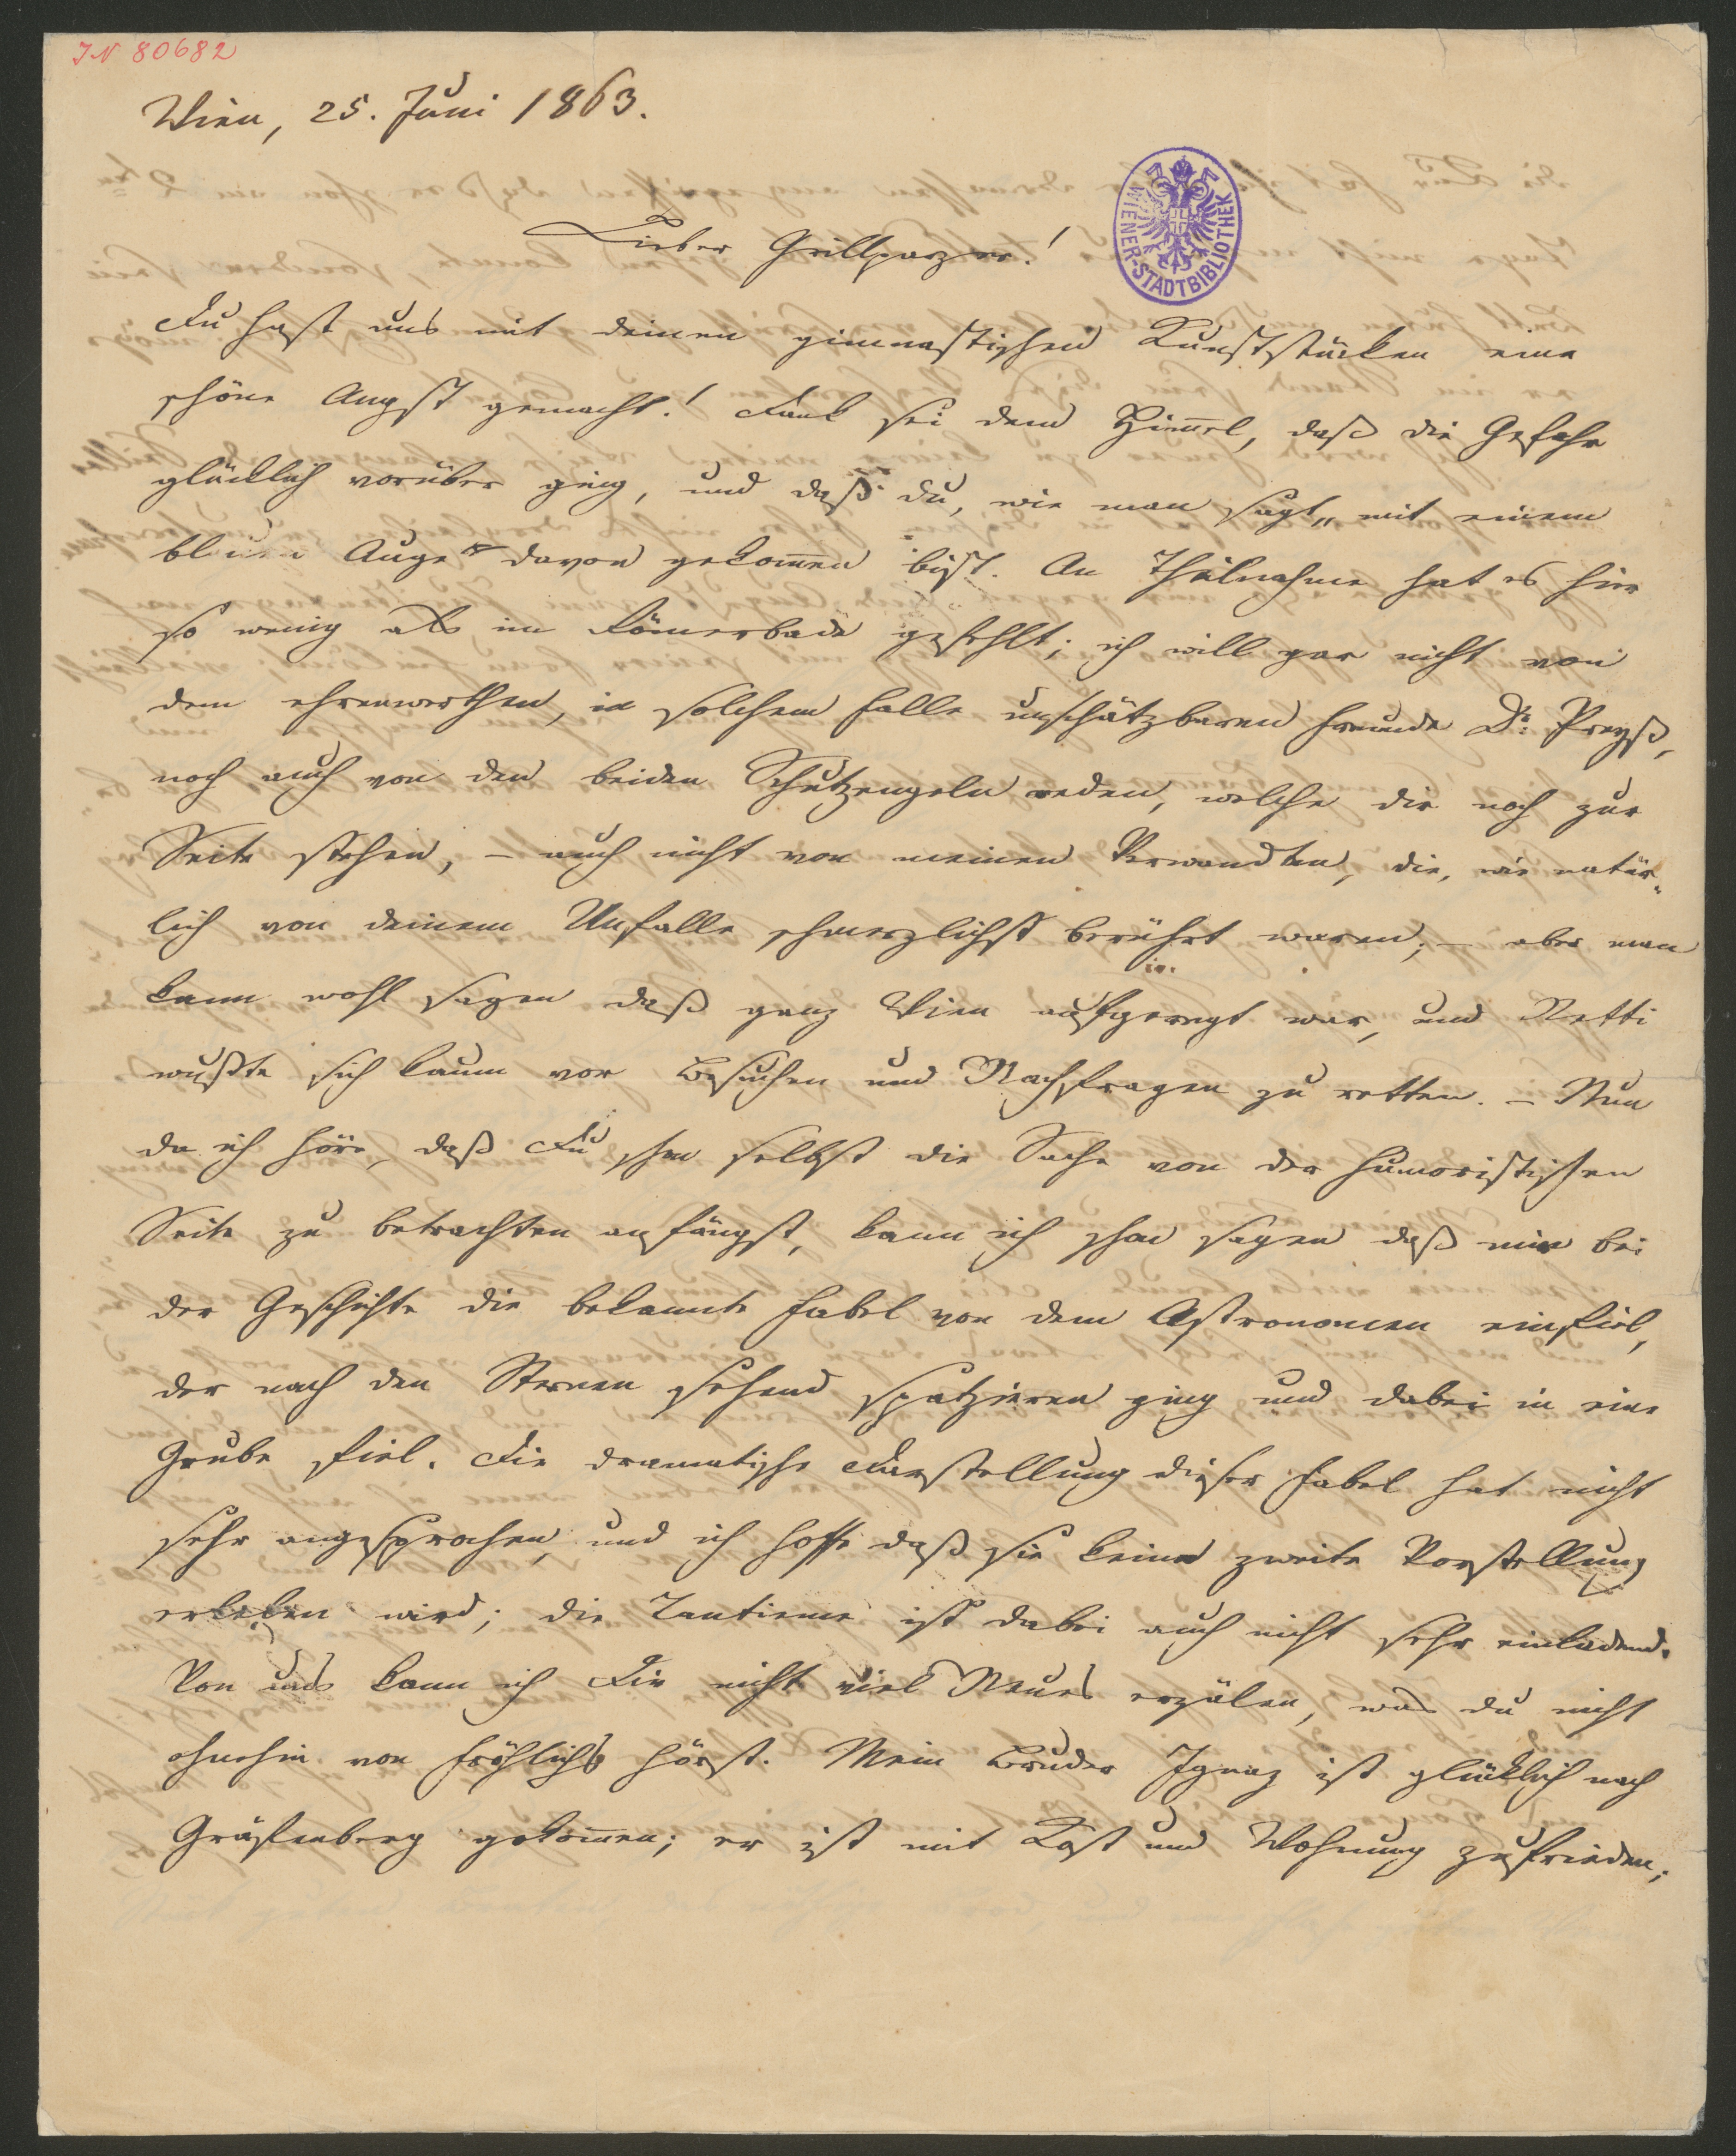 IN 80682
Wien, 25. Juni 1863.
WIENER-STADTBIBLIOTHEK
Lieber Grillparzer!
Du hast uns mit deinen gimnastischen Kunststücken eine
schöne Angst gemacht! Dank sei dem Him̅el, daß die Gefahr
glücklich vorüber ging, und daß du, wie man sagt „mit einem
blauen Auge“ davon gekom̅en bist. An Theilnahme hat es hier
so wenig als im Römerbade gefehlt; ich will gar nicht von
dem ehrenwerthen, in solchem Falle unschätzbaren Freunde Dr. Preyß,
noch auch von den beiden Schutzengeln reden, welche dir noch zur
Seite stehen, – auch nicht von meinen Verwandten, die, wie natür-
lich von deinem Unfalle schmerzlichst berührt waren; – aber man
kann wohl sagen daß ganz Wien aufgeregt war, und Netti
wußte sich kaum vor Besuchen und Nachfragen zu retten. – Nun
da ich höre, daß Du schon selbst die Sache von der humoristischen
Seite zu betrachten anfängst, kann ich schon sagen daß mir bei
der Geschichte die bekannte Fabel von dem Astronomen einfiel,
der nach den Sternen sehend spatzieren ging und dabei in eine
Grube fiel. Die dramatische Darstellung dieser Fabel hat nicht
sehr angesprochen, und ich hoffe daß sie keine zweite Vorstellung
erleben wird; die Tantieme ist dabei auch nicht sehr einladend.
Von uns kann ich Dir nicht viel Neues erzälen, was du nicht
ohnehin von Fröhlichs hörst. Mein Bruder Ignaz ist glücklich nach
Gräfenberg gekom̅en; er ist mit Kost und Wohnung zufrieden;